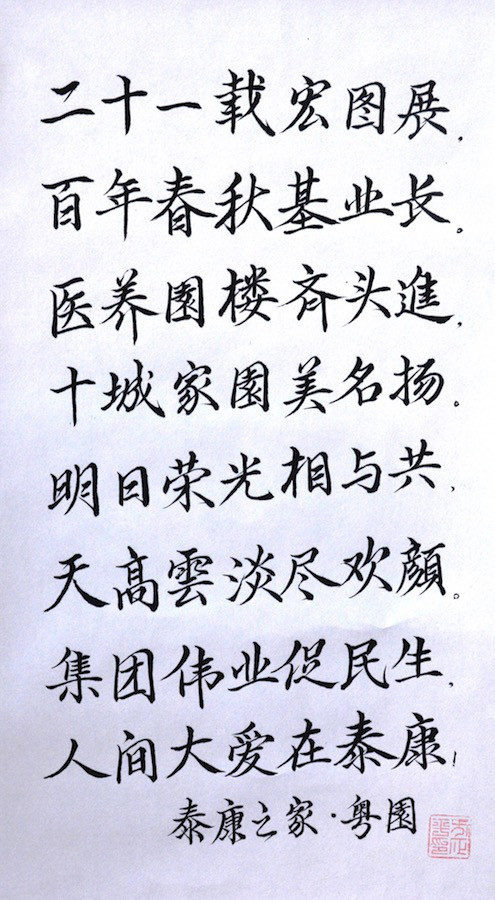 二十一载宏图展，
百年春秋基业长。
医养園楼齐头進，
十城家園美名扬。
明日荣光相与共，
天髙雲淡尽欢顔。
集团伟业促民生，
人间大爱在泰康！
泰康之家·粤園